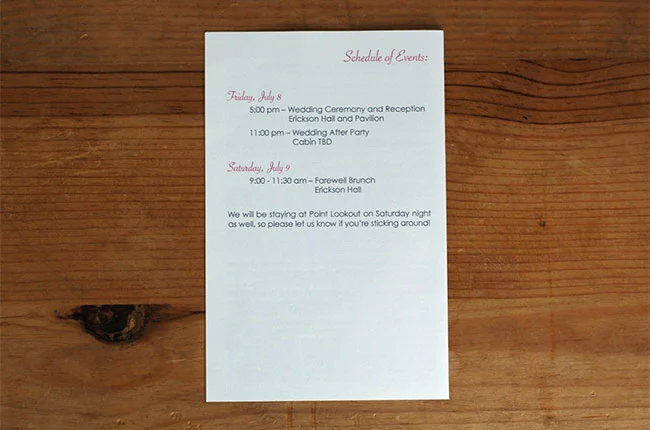 Schedule of Events:
Friday, July 8
5:00 pm – Wedding Ceremony and Reception
Erickson Hall and Pavilion
11:00 pm – Wedding After Party
Cabin TBD
Saturday, July 9
9:00 - 11:30 am – Farewell Brunch
Erickson Hall
We will be staying at Point Lookout on Saturday night
as well, so please let us know if you're sticking around!